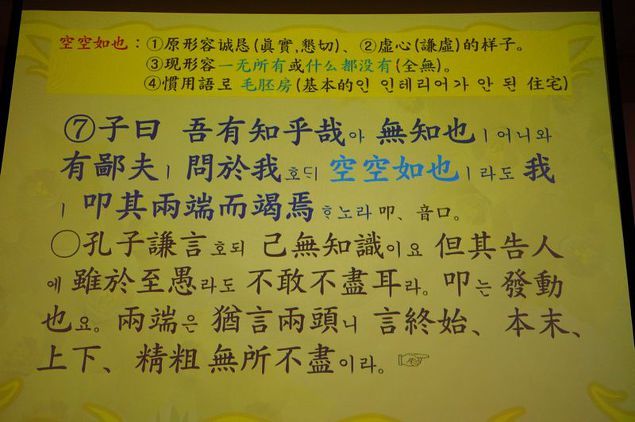 空空如也：①原形容诚恳(眞實,懇切)、②虛心(謙虛)的样子。
③现形容一无所有或什么都没有(全無)。
④慣用語로 毛胚房(基本的인 인테리어가 안 된 住宅)
⑦子曰 吾有知乎哉아 無知也ㅣ어니와
有鄙夫ㅣ 問於我호ᄃᆡ 空空如也ㅣ라도 我
ㅣ 叩其兩端而竭焉ᄒᆞ노라 叩、音口。
○孔子謙言호되 己無知識이요 但其告人
에 雖於至愚라도 不敢不盡耳라。叩는 發動
也요。兩端은 猶言兩頭니 言終始、本末、
上下、精粗 無所不盡이라。☞